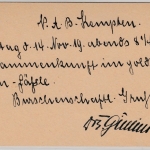 N. A. B. Kempten.
tag d. 14. Nov. 19. abends 8¼
sammenkunft im gold
n-säle.
Burschenschaftl. Gruß